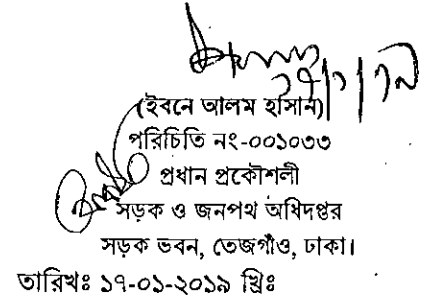 (ইবনে আলম হাসান)
পরিচিতি নং-০০১০৩৩
প্রধান প্রকৌশলী
সড়ক ও জনপথ অধিদপ্তর
সড়ক ভবন, তেজগাঁও, ঢাকা।
তারিখঃ ১৭-০১-২০১৯ খ্রিঃ